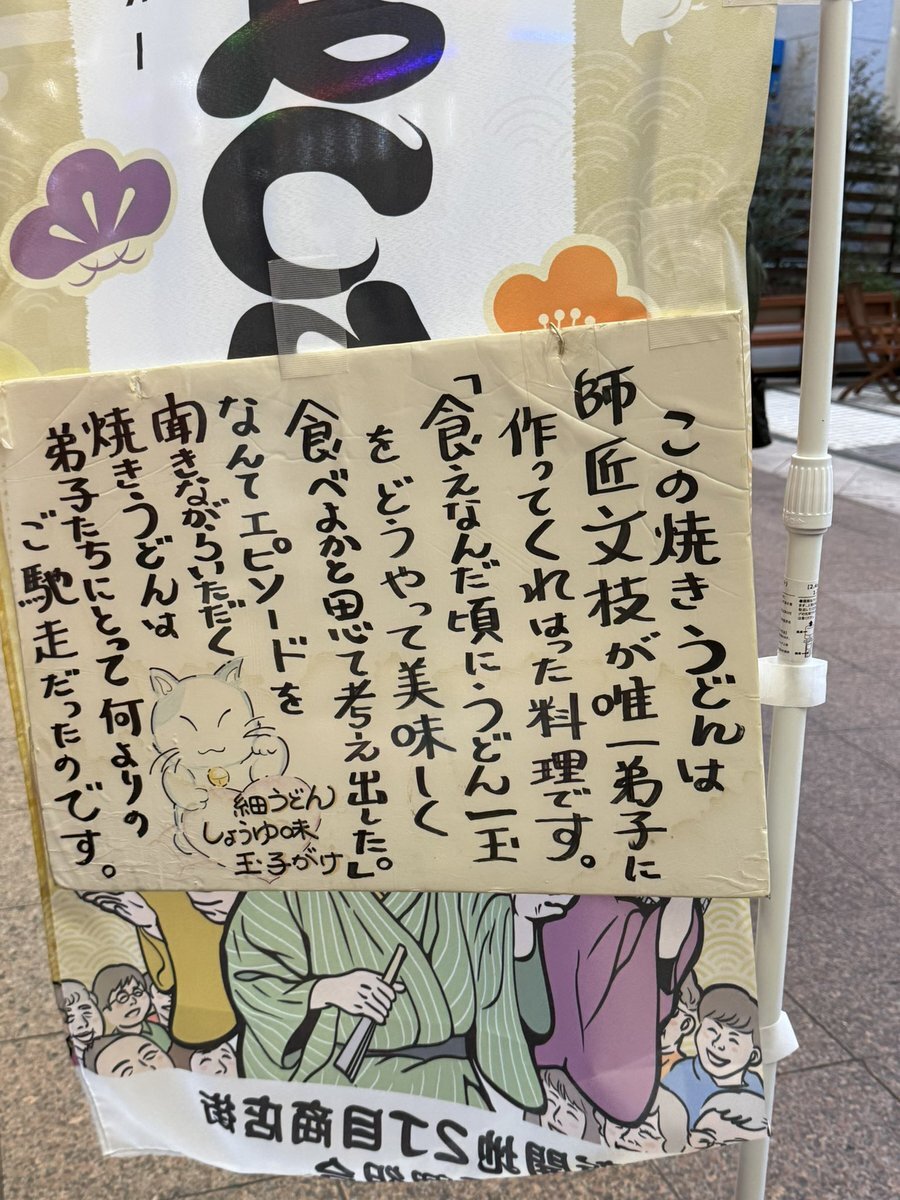 この焼きうどんは
師匠文枝が唯一弟子に
作ってくれはった料理です。
「食えなんだ頃にうどん一玉
をどうやって美味しく
食べよかと思て考え出した。」
なんてエピソードを
聞きながらいただく
焼きうどんは
弟子たちにとって何よりの
ご馳走だったのです。
細うどん
しょうゆ味
玉子がけ
2丁目商店街